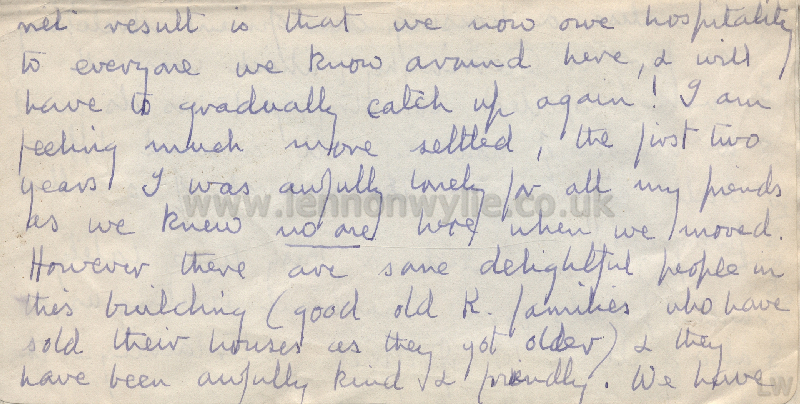 net result is that we now owe hospitality
to everyone we know around here, & will
have to gradually catch up again! I am
feeling much more settled, the first two
years I was awfully lonely for all my friends
www.lennonwylie.co.uk
as we knew no one here when we moved.
However there are some delightful people in
this building (good old K. families who have
sold their houses as they got older) & they
have been awfully kind & friendly. We have
LW